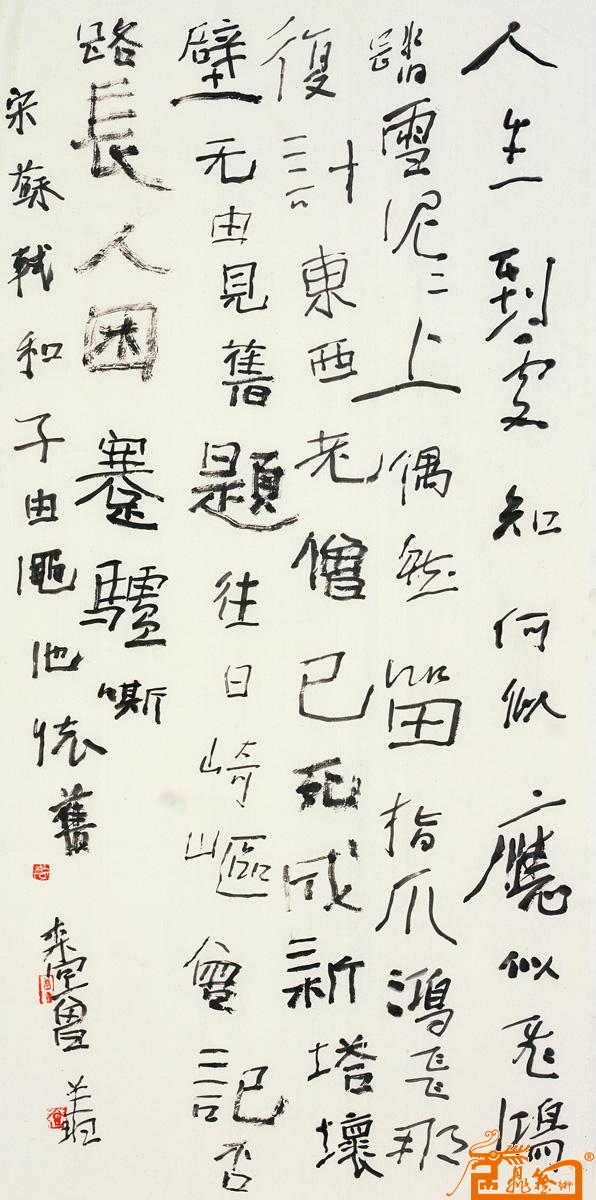 人生到處知何似應似飛鴻
踏雪泥〻上偶然留指爪鴻飛那
復計東西老僧已死成新塔壞
壁无由見舊題往日崎嶇曾記否
路長人困蹇驢嘶
宋蘇軾和子由澠池懷舊 曾翔